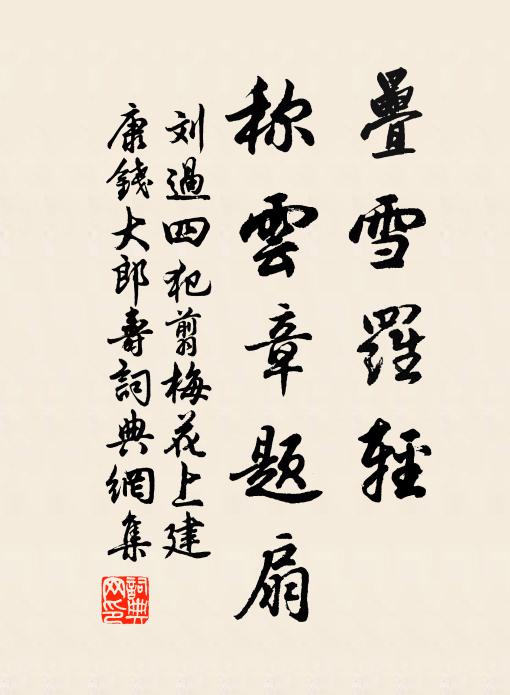 疊雪羅輕
称雲章題扇
刘過四犯剪梅花上建
康錢大郎壽詞典網集
詞典网印